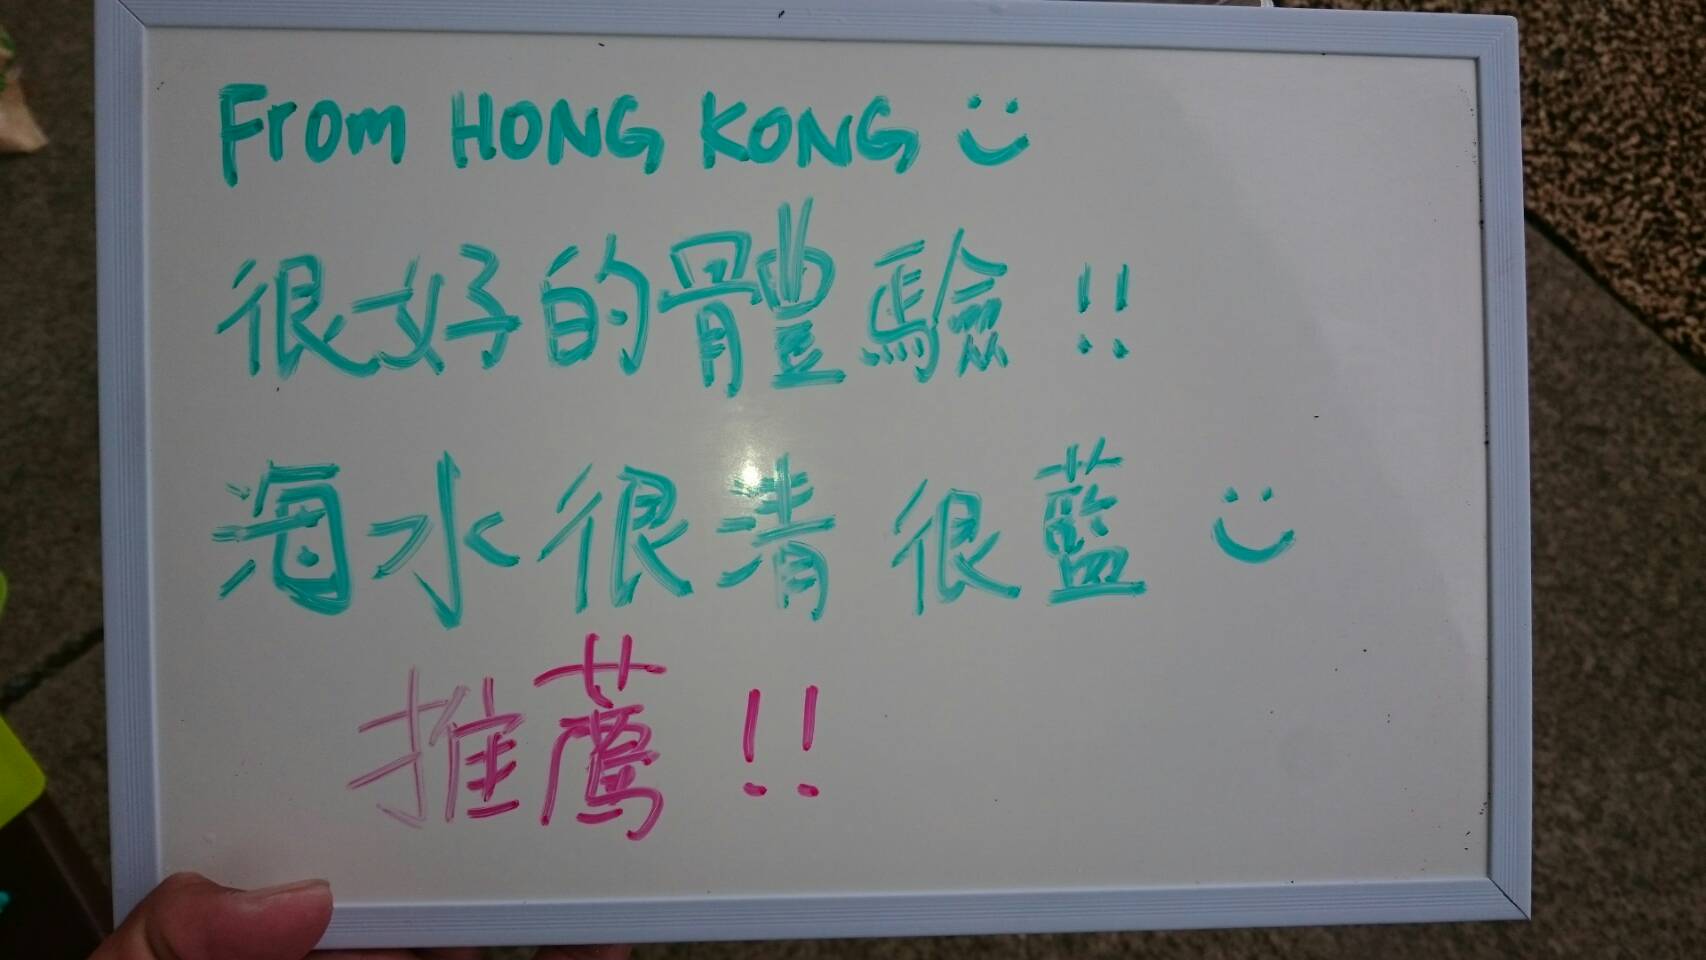 From HONG KONG
很好的體驗!!
海水很清很藍
推薦!!